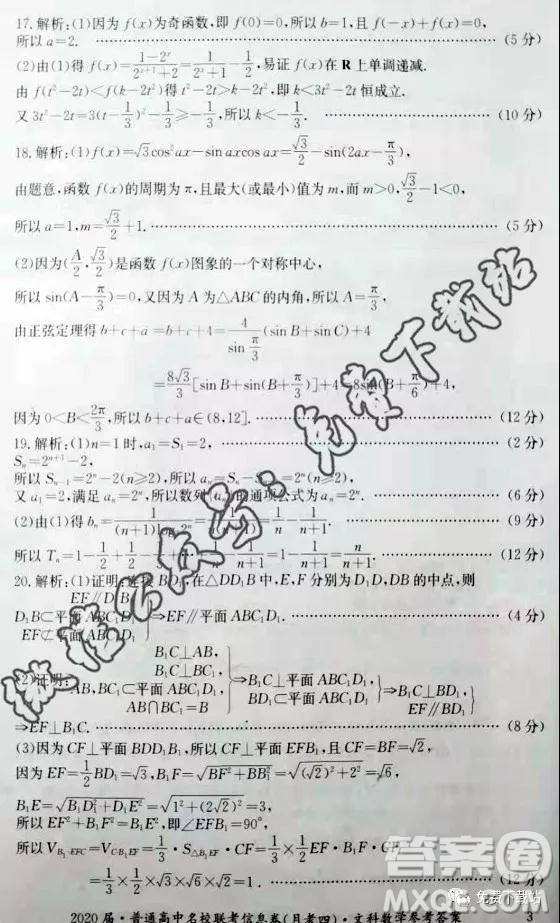 17.解析:(1)因为 f(x)为奇函数,即 f(0)=0,所以 b=1,且 f(-x)+f(x)=0,
所以 a=2. (5分)
(2)由(1)得 f(x)=(1-2ˣ)/(2ˣ⁺¹+2)=1/(2ˣ+1)-1/2,易证 f(x)在 R 上单调递减.
由 f(t²-2t)<f(k-2t²)得 t²-2t>k-2t²,即 k<3t²-2t 恒成立.
又 3t²-2t=3(t-1/3)²-1/3≥-1/3,所以 k<-1/3. (10分)
18.解析:(1)f(x)=√3cos²ax-sin axcos ax=√3/2-sin(2ax-π/3),
由题意,函数 f(x)的周期为 π,且最大(或最小)值为 m,而 m>0,√3/2-1<0,
所以 a=1,m=√3/2+1. (5分)
(2)因为(A/2,√3/2)是函数 f(x)图象的一个对称中心,
所以 sin(A-π/3)=0,又因为 A 为△ABC 的内角,所以 A=π/3,
由正弦定理得 b+c+a=b+c+4=4/sin(π/3)(sin B+sin C)+4
=8√3/3[sin B+sin(B+π/3)]+4=8sin(B+π/6)+4,
因为 0<B<2π/3,所以 b+c+a∈(8,12]. (12分)
19.解析:(1)n=1 时,a₁=S₁=2, (2分)
Sₙ=2ⁿ⁺¹-2,
所以 Sₙ₋₁=2ⁿ-2(n≥2),所以 aₙ=Sₙ-Sₙ₋₁=2ⁿ(n≥2),
又 a₁=2,满足 aₙ=2ⁿ,所以数列{aₙ}的通项公式为 aₙ=2ⁿ. (6分)
(2)由(1)得 bₙ=1/((n+1)log₂2ⁿ)=1/(n(n+1))=1/n-1/(n+1). (9分)
所以 Tₙ=1-1/2+1/2-1/3+…+1/n-1/(n+1)=1-1/(n+1)=n/(n+1). (12分)
20.解析:(1)证明:连接 BD₁,在△DD₁B 中,E,F 分别为 D₁D,DB 的中点,则
EF∥D₁B
D₁B⊂平面 ABC₁D₁ ⇒EF∥平面 ABC₁D₁. (4分)
EF⊄平面 ABC₁D₁
B₁C⊥AB,
B₁C⊥BC₁,
(2)证明: AB,BC₁⊂平面 ABC₁D₁, ⇒B₁C⊥平面 ABC₁D₁, BD₁⊂平面 ABC₁D₁ ⇒B₁C⊥BD₁, EF∥BD₁
AB∩BC₁=B
⇒EF⊥B₁C. (8分)
(3)因为 CF⊥平面 BDD₁B₁,所以 CF⊥平面 EFB₁,且 CF=BF=√2,
因为 EF=1/2BD₁=√3,B₁F=√(BF²+BB₁²)=√((√2)²+2²)=√6,
B₁E=√(B₁D₁²+D₁E²)=√(1²+(2√2)²)=3,
所以 EF²+B₁F²=B₁E²,即∠EFB₁=90°,
所以 V_{B₁-EFC}=V_{C-B₁EF}=1/3·S_{△B₁EF}·CF=1/3×1/2EF·B₁F·CF
(12分)
2020 届·普通高中名校联考信息卷(月考四)·文科数学参考答案 3
微信公众号:免费下载站
答案圈
MXQE.COM
免费下载站